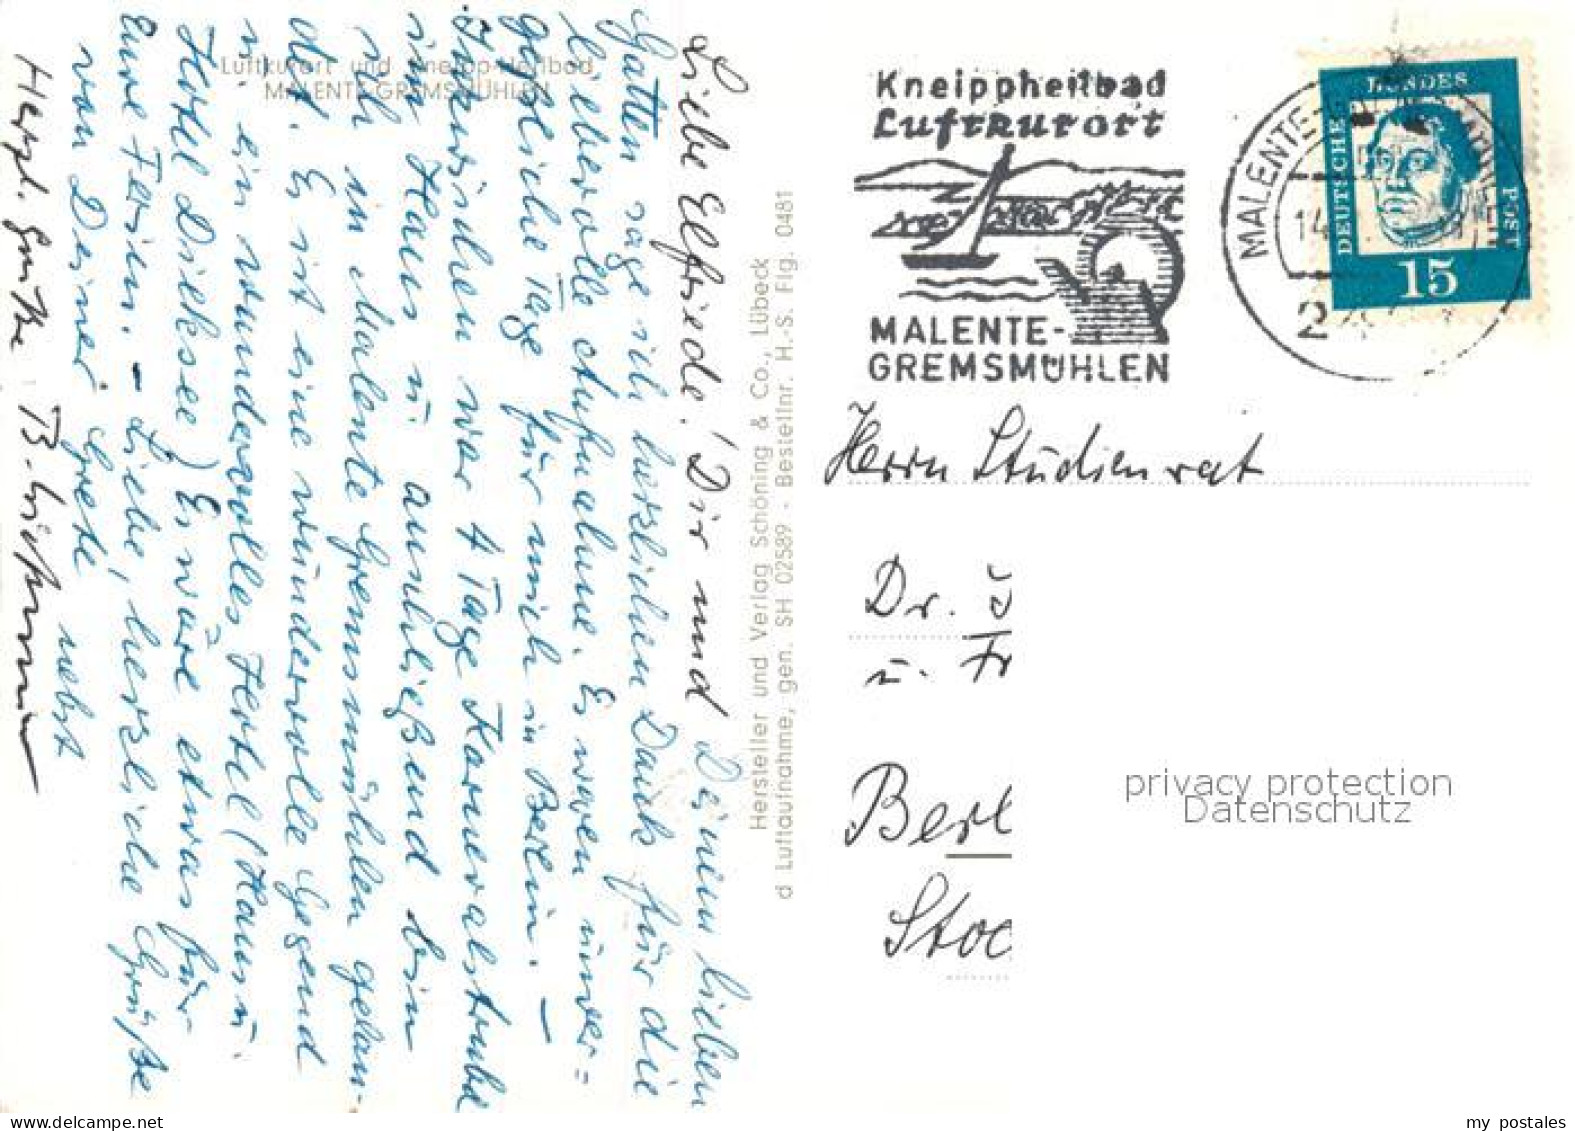 Liebe Elfriede! Dir und Deinem lieben
Gatten sage ich herzlichen Dank für die
liebevolle Aufnahme. Es waren unver=
geßliche Tage für mich in Berlin. —
Inzwischen war 4 Tage Karnevalstrubel
im Haus u. anschließend bin
ich in Malente Gremsmühlen gelan-
det. Es ist eine wundervolle Gegend
u. ein wundervolles Hotel (Haus u.
Hotel Dieksee) Es wäre etwas für
Eure Ferien. — Liebe, herzliche Grüße
von Deiner Grete nebst
Herzl. Grüße
Luftkurort und Kneipp-Heilbad
MALENTE-GREMSMÜHLEN
Hersteller und Verlag Schöning & Co., Lübeck
d Luftaufnahme, gen. SH 02589 - Bestellnr. H.-S. Flg. 0481
Kneippheilbad
Luftkurort
MALENTE-
GREMSMÜHLEN
MALENTE-GREMSMÜHLEN
14
2
DEUTSCHE
BUNDES
POST
15
Herrn Studienrat
Dr.
u. Fr
Berl
Stoc
privacy protection
Datenschutz
my postales